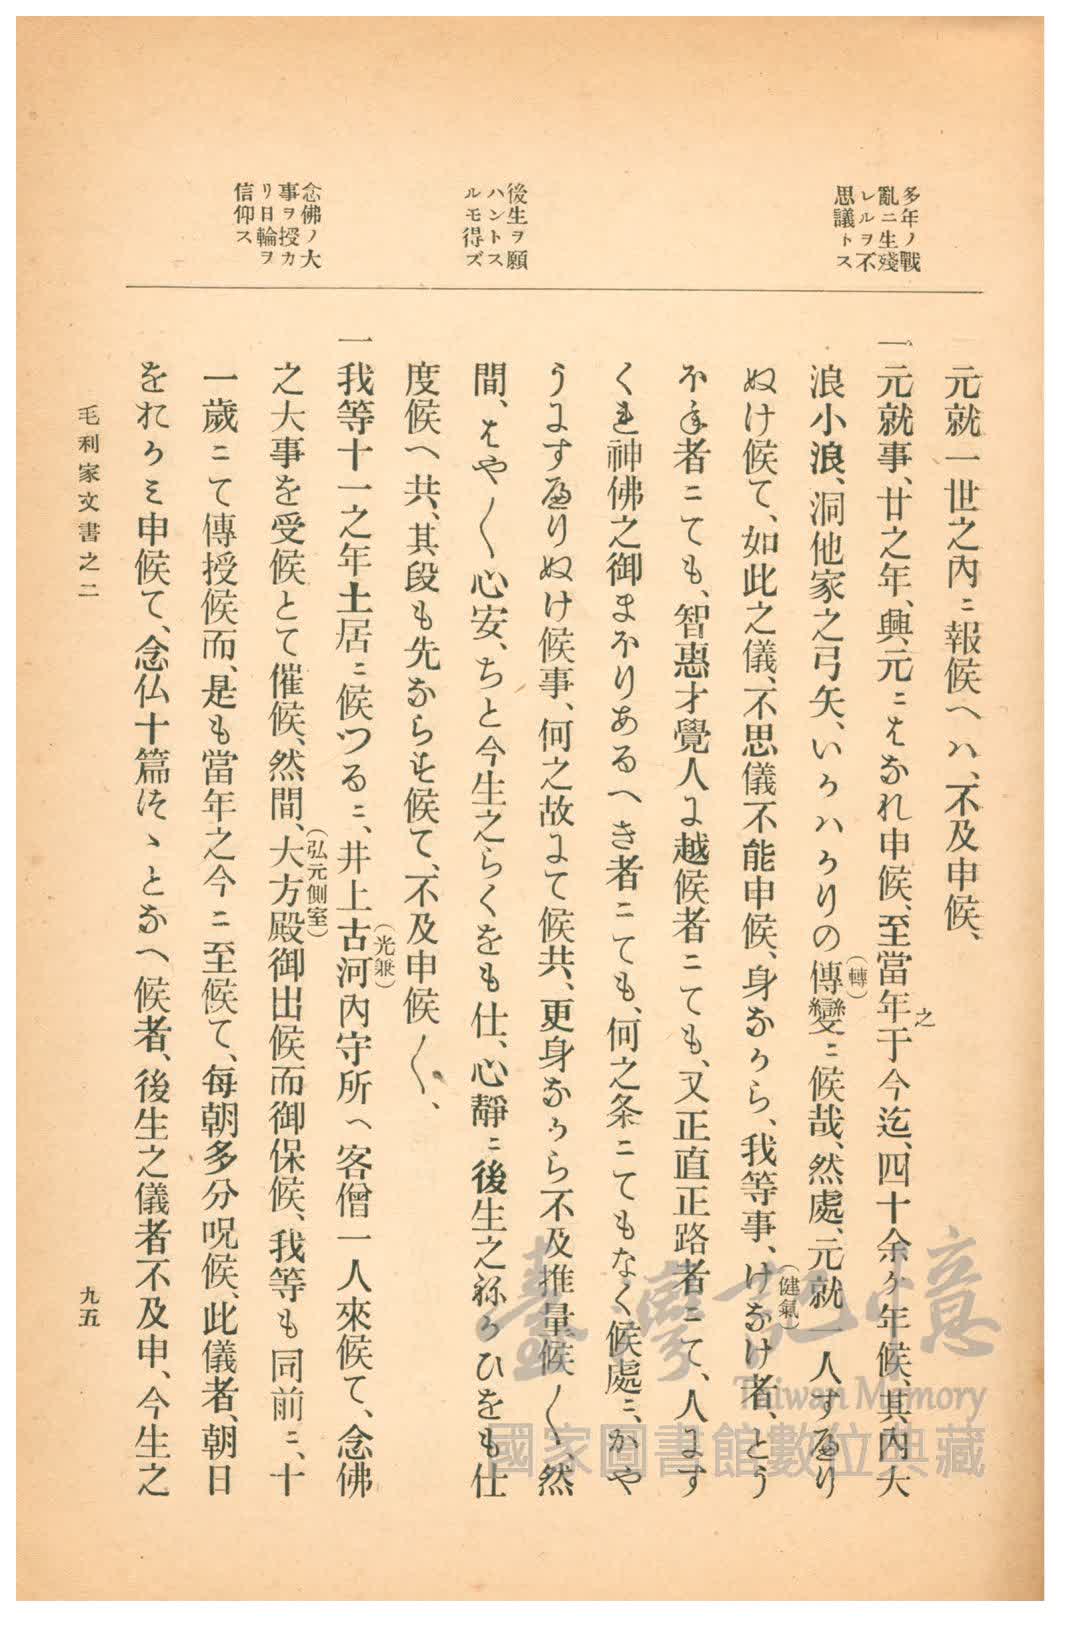 多年ノ戰
亂ニ生殘
レルヲ不
思議トス
後生ヲ願
ハントス
ルモ得ズ
念佛ノ大
事ヲ授カ
リ日輪ヲ
信仰ス
元就一世之內ニ報候ヘハ、不及申候、
一元就事、廿之年、興元ニはなれ申候、至當年之于今迄、四十余ヶ年候、其內大
浪小浪、洞他家之弓矢、いかハかりの傳(轉)變ニ候哉、然處、元就一人すへり
ぬけ候て、如此之儀、不思儀不能申候、身なから、我等事、けなけ(健氣)者、とう
ほね者ニても、智惠才覺人ニ越候者ニても、又正直正路者ニて、人ニす
くれ神佛之御まほりあるへき者ニても、何之条ニてもなく候處ニ、かや
うニすへりぬけ候事、何之故ニて候共、更身なから不及推量候〱、然
間、はや〱心安、ちと今生之らくをも仕、心靜ニ後生之ねかひをも仕
度候ヘ共、其段も先ならす候て、不及申候〱、
一我等十一之年土居ニ候つるニ、井上古河內守(光兼)所ヘ客僧一人來候て、念佛
之大事を受候とて催候、然間、大方殿(弘元側室)御出候而御保候、我等も同前ニ、十
一歲ニて傳授候而、是も當年之今ニ至候て、每朝多分呪候、此儀者、朝日
をおかミ申候て、念仏十篇つゝとなへ候者、後生之儀者不及申、今生之
毛利家文書之二
九五
臺灣記憶
Taiwan Memory
國家圖書館數位典藏